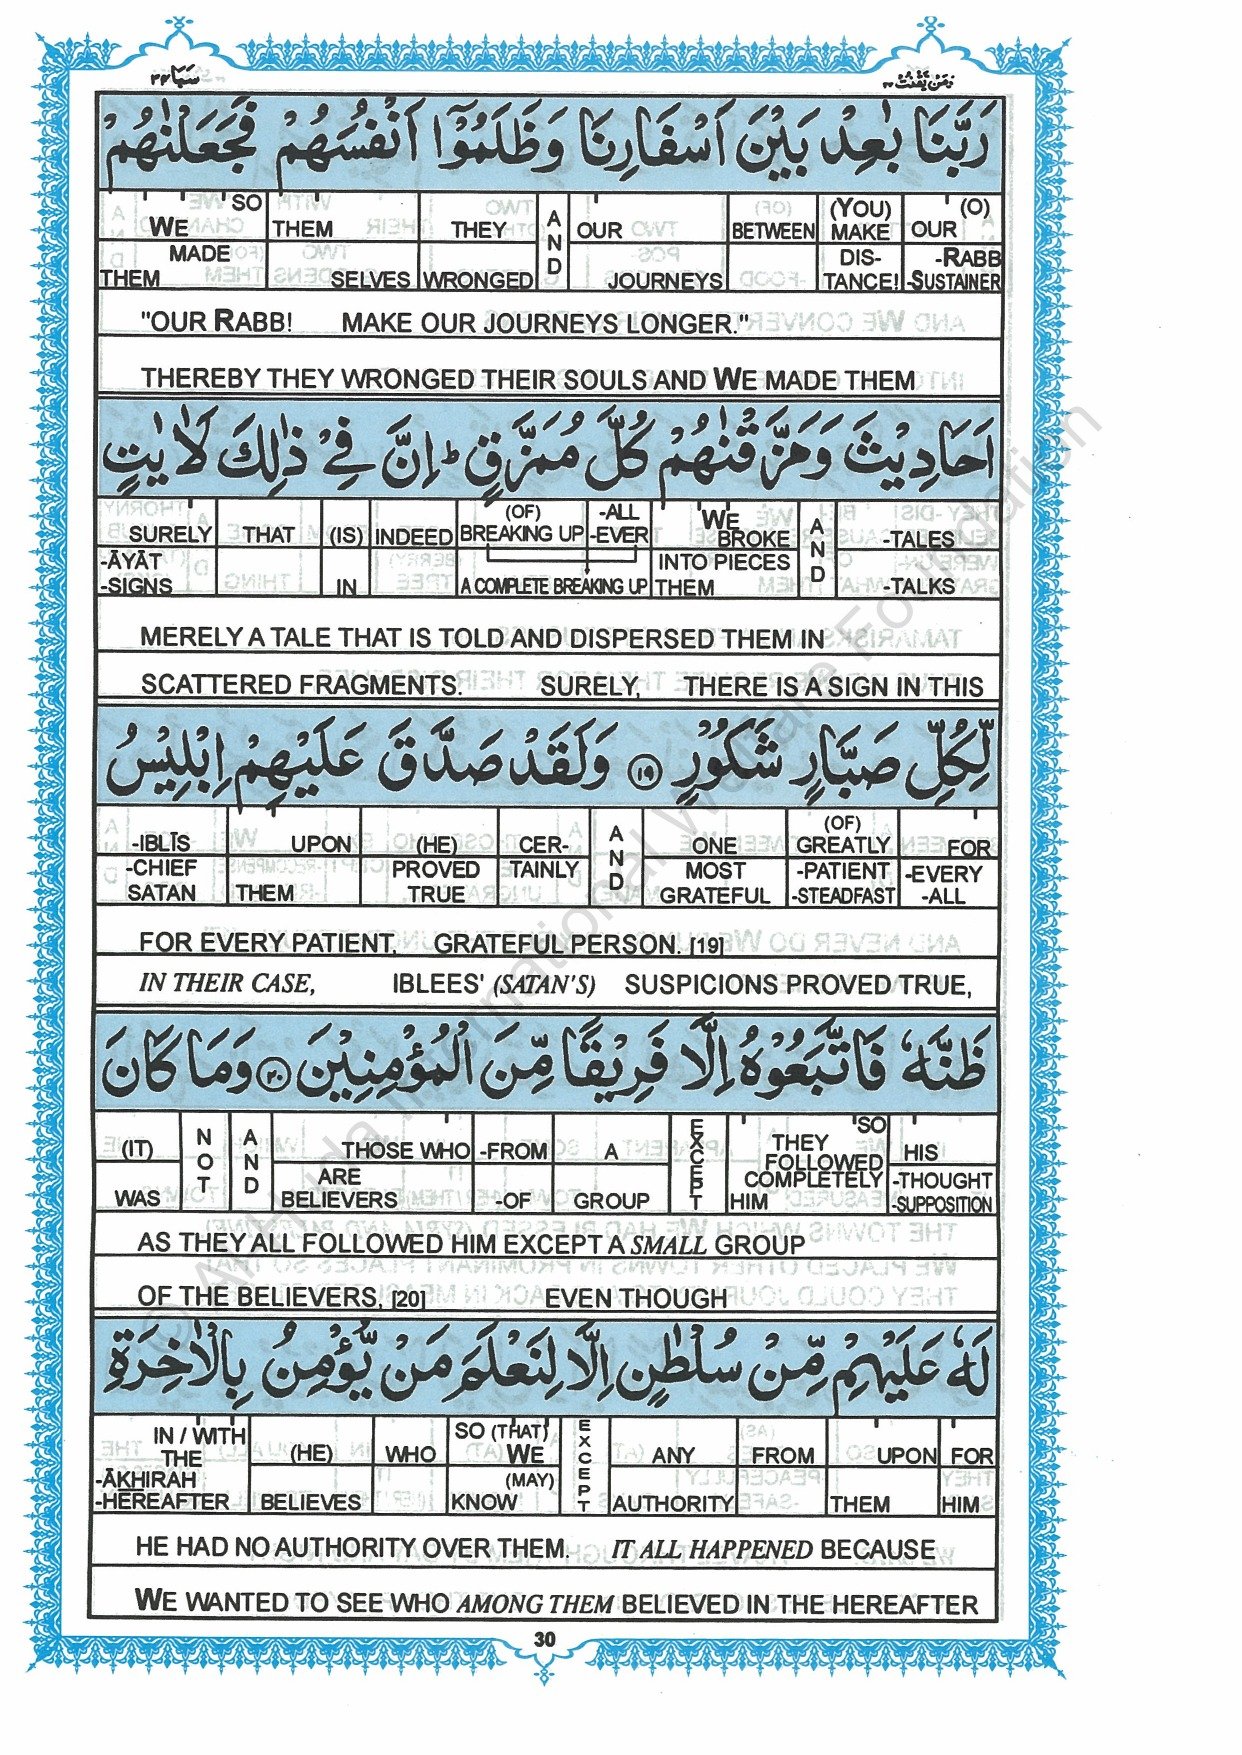 سَبَا ٣٤
وَمَنْ يَّقْنُتْ ٢٢
رَبَّنَا بٰعِدْ بَيْنَ اَسْفَارِنَا وَظَلَمُوْٓا اَنْفُسَهُمْ فَجَعَلْنٰهُمْ
SO WE MADE THEM | THEM SELVES | THEY WRONGED | AND | OUR JOURNEYS | BETWEEN | (YOU) MAKE DIS- TANCE! | (O) OUR -RABB -SUSTAINER
"OUR RABB! MAKE OUR JOURNEYS LONGER."
THEREBY THEY WRONGED THEIR SOULS AND WE MADE THEM
اَحَادِيْثَ وَمَزَّقْنٰهُمْ كُلَّ مُمَزَّقٍ ؕ اِنَّ فِيْ ذٰلِكَ لَاٰيٰتٍ
SURELY -ĀYĀT -SIGNS | THAT | (IS) IN | INDEED | (OF) BREAKING UP | -ALL -EVER | A COMPLETE BREAKING UP | WE BROKE INTO PIECES THEM | AND | -TALES -TALKS
MERELY A TALE THAT IS TOLD AND DISPERSED THEM IN
SCATTERED FRAGMENTS. SURELY, THERE IS A SIGN IN THIS
لِّكُلِّ صَبَّارٍ شَكُوْرٍ ١٩ وَلَقَدْ صَدَّقَ عَلَيْهِمْ اِبْلِيْسُ
-IBLĪS -CHIEF SATAN | UPON THEM | (HE) PROVED TRUE | CER- TAINLY | AND | ONE MOST GRATEFUL | (OF) GREATLY -PATIENT -STEADFAST | FOR -EVERY -ALL
FOR EVERY PATIENT, GRATEFUL PERSON. [19]
IN THEIR CASE, IBLEES' (SATAN'S) SUSPICIONS PROVED TRUE,
ظَنَّهٗ فَاتَّبَعُوْهُ اِلَّا فَرِيْقًا مِّنَ الْمُؤْمِنِيْنَ ٢٠ وَمَا كَانَ
(IT) WAS | NOT | AND | THOSE WHO ARE BELIEVERS | -FROM -OF | A GROUP | EXCEPT | SO THEY FOLLOWED COMPLETELY HIM | HIS -THOUGHT -SUPPOSITION
AS THEY ALL FOLLOWED HIM EXCEPT A SMALL GROUP
OF THE BELIEVERS, [20] EVEN THOUGH
لَهٗ عَلَيْهِمْ مِّنْ سُلْطٰنٍ اِلَّا لِنَعْلَمَ مَنْ يُّؤْمِنُ بِالْاٰخِرَةِ
IN / WITH THE -ĀKHIRAH -HEREAFTER | (HE) BELIEVES | WHO | SO (THAT) WE (MAY) KNOW | EXCEPT | ANY AUTHORITY | FROM | UPON THEM | FOR HIM
HE HAD NO AUTHORITY OVER THEM. IT ALL HAPPENED BECAUSE
WE WANTED TO SEE WHO AMONG THEM BELIEVED IN THE HEREAFTER
30